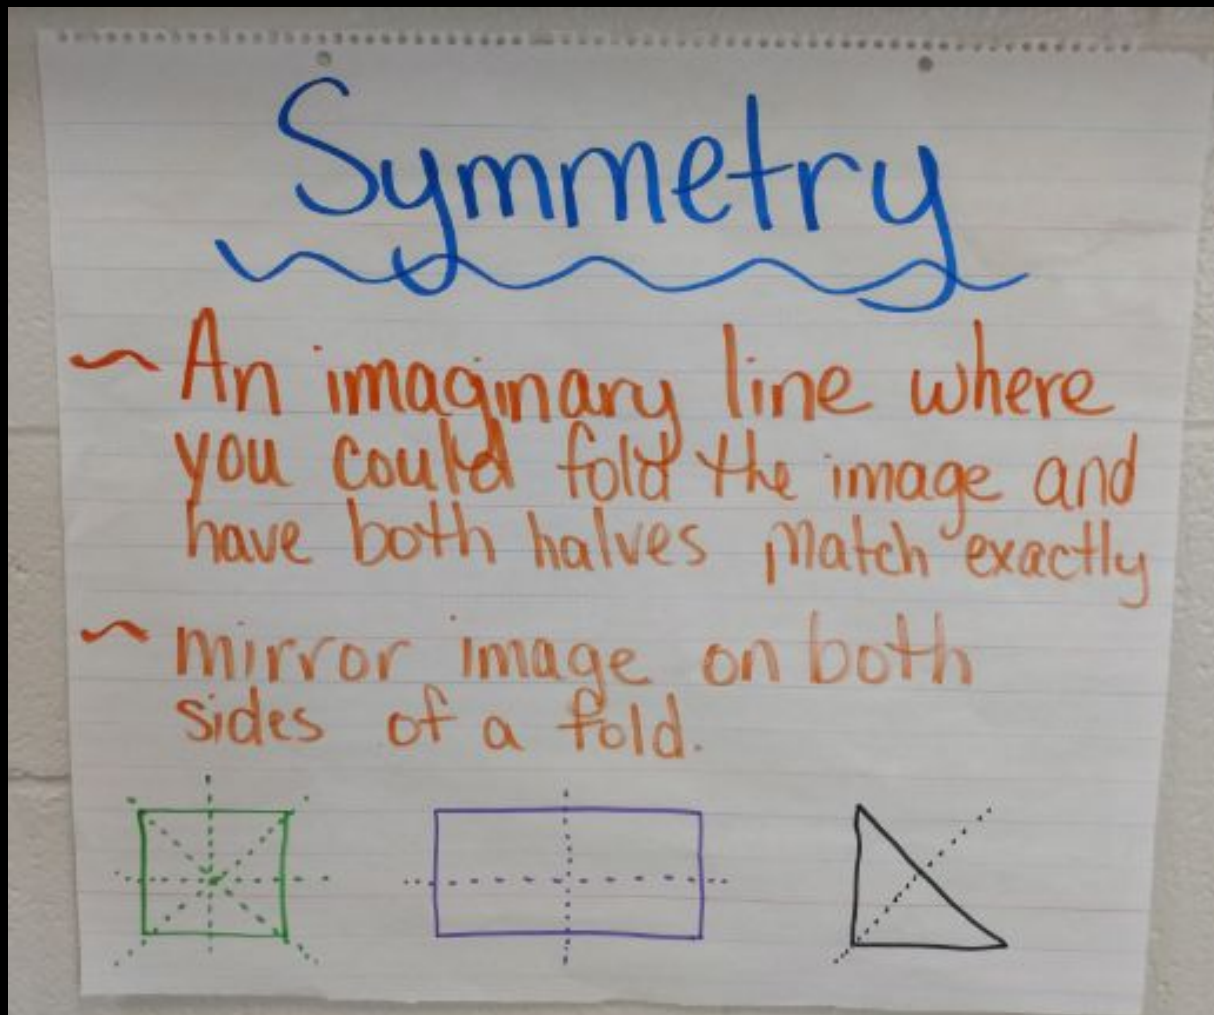 Symmetry
~ An imaginary line where
you could fold the image and
have both halves match exactly
~ mirror image on both
sides of a fold.